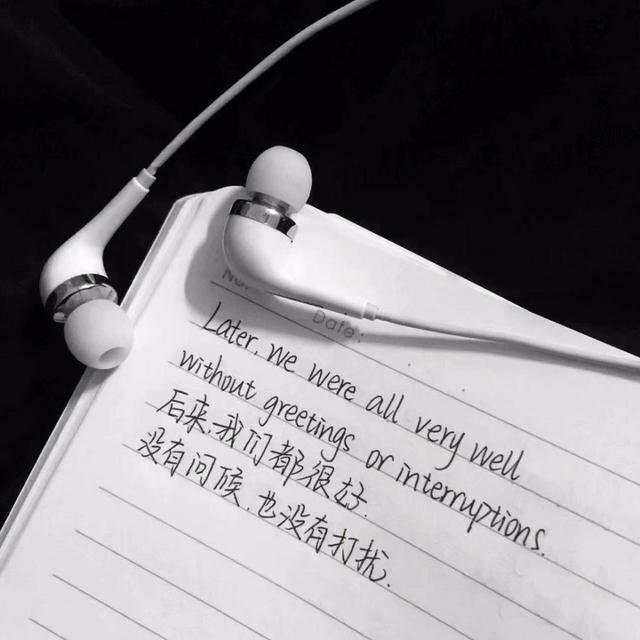 Date:
Later, we were all very well
without greetings or interruptions.
后来,我们都很好
没有问候,也没有打扰.